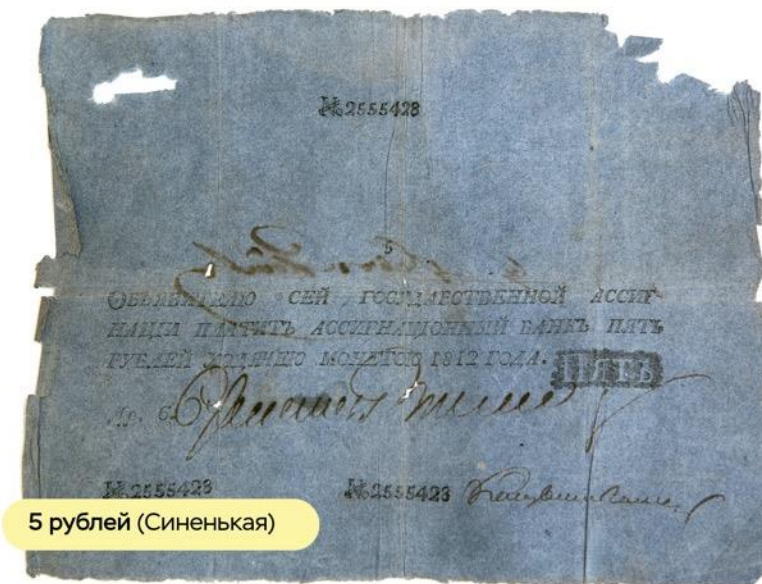 №2555428
5
ОБЪЯВИТЕЛЮ СЕЙ ГОСУДАРСТВЕННОЙ АССИГ-
НАЦІИ ПЛАТИТЪ АССИГНАЦІОННЫЙ БАНКЪ ПЯТЬ
РУБЛЕЙ ХОДЯЧЕЮ МОНЕТОЮ 1812 ГОДА. ПЯТЬ
№2555428 №2555428
5 рублей (Синенькая)